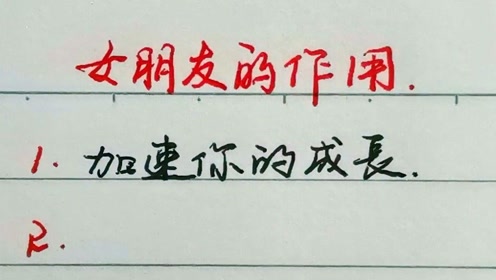 女朋友的作用.
1. 加速你的成長.
2.